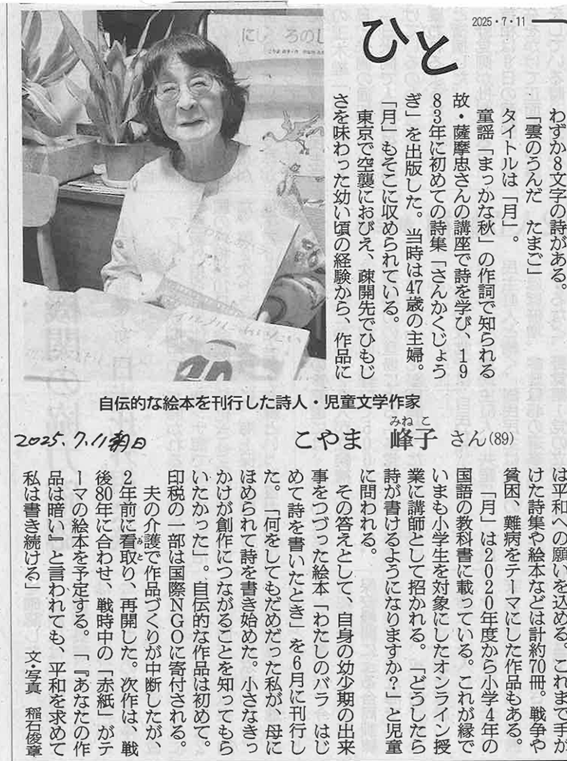 2025・7・11
ひと
わずか8文字の詩がある。
「雲のうんだ　たまご」
タイトルは「月」。
童謡「まっかな秋」の作詞で知られる
故・薩摩忠さんの講座で詩を学び、19
83年に初めての詩集「さんかくじょう
ぎ」を出版した。当時は47歳の主婦。
「月」もそこに収められている。
東京で空襲におびえ、疎開先でひもじ
さを味わった幼い頃の経験から、作品に
自伝的な絵本を刊行した詩人・児童文学作家
こやま　峰子さん(89)
みね こ
2025.7.11朝日
は平和への願いを込める。これまで手が
けた詩集や絵本などは計約70冊。戦争や
貧困、難病をテーマにした作品もある。
「月」は2020年度から小学4年の
国語の教科書に載っている。これが縁で
いまも小学生を対象にしたオンライン授
業に講師として招かれる。「どうしたら
詩が書けるようになりますか？」と児童
に問われる。
その答えとして、自身の幼少期の出来
事をつづった絵本「わたしのバラ　はじ
めて詩を書いたとき」を6月に刊行し
た。「何をしてもだめだった私が、母に
ほめられて詩を書き始めた。小さなきっ
かけが創作につながることを知ってもら
いたかった」。自伝的な作品は初めて。
印税の一部は国際NGOに寄付される。
夫の介護で作品づくりが中断したが、
2年前に看取り、再開した。次作は、戦
後80年に合わせ、戦時中の「赤紙」がテ
ーマの絵本を予定する。「『あなたの作
品は暗い』と言われても、平和を求めて
私は書き続ける」
文・写真　稲石俊章